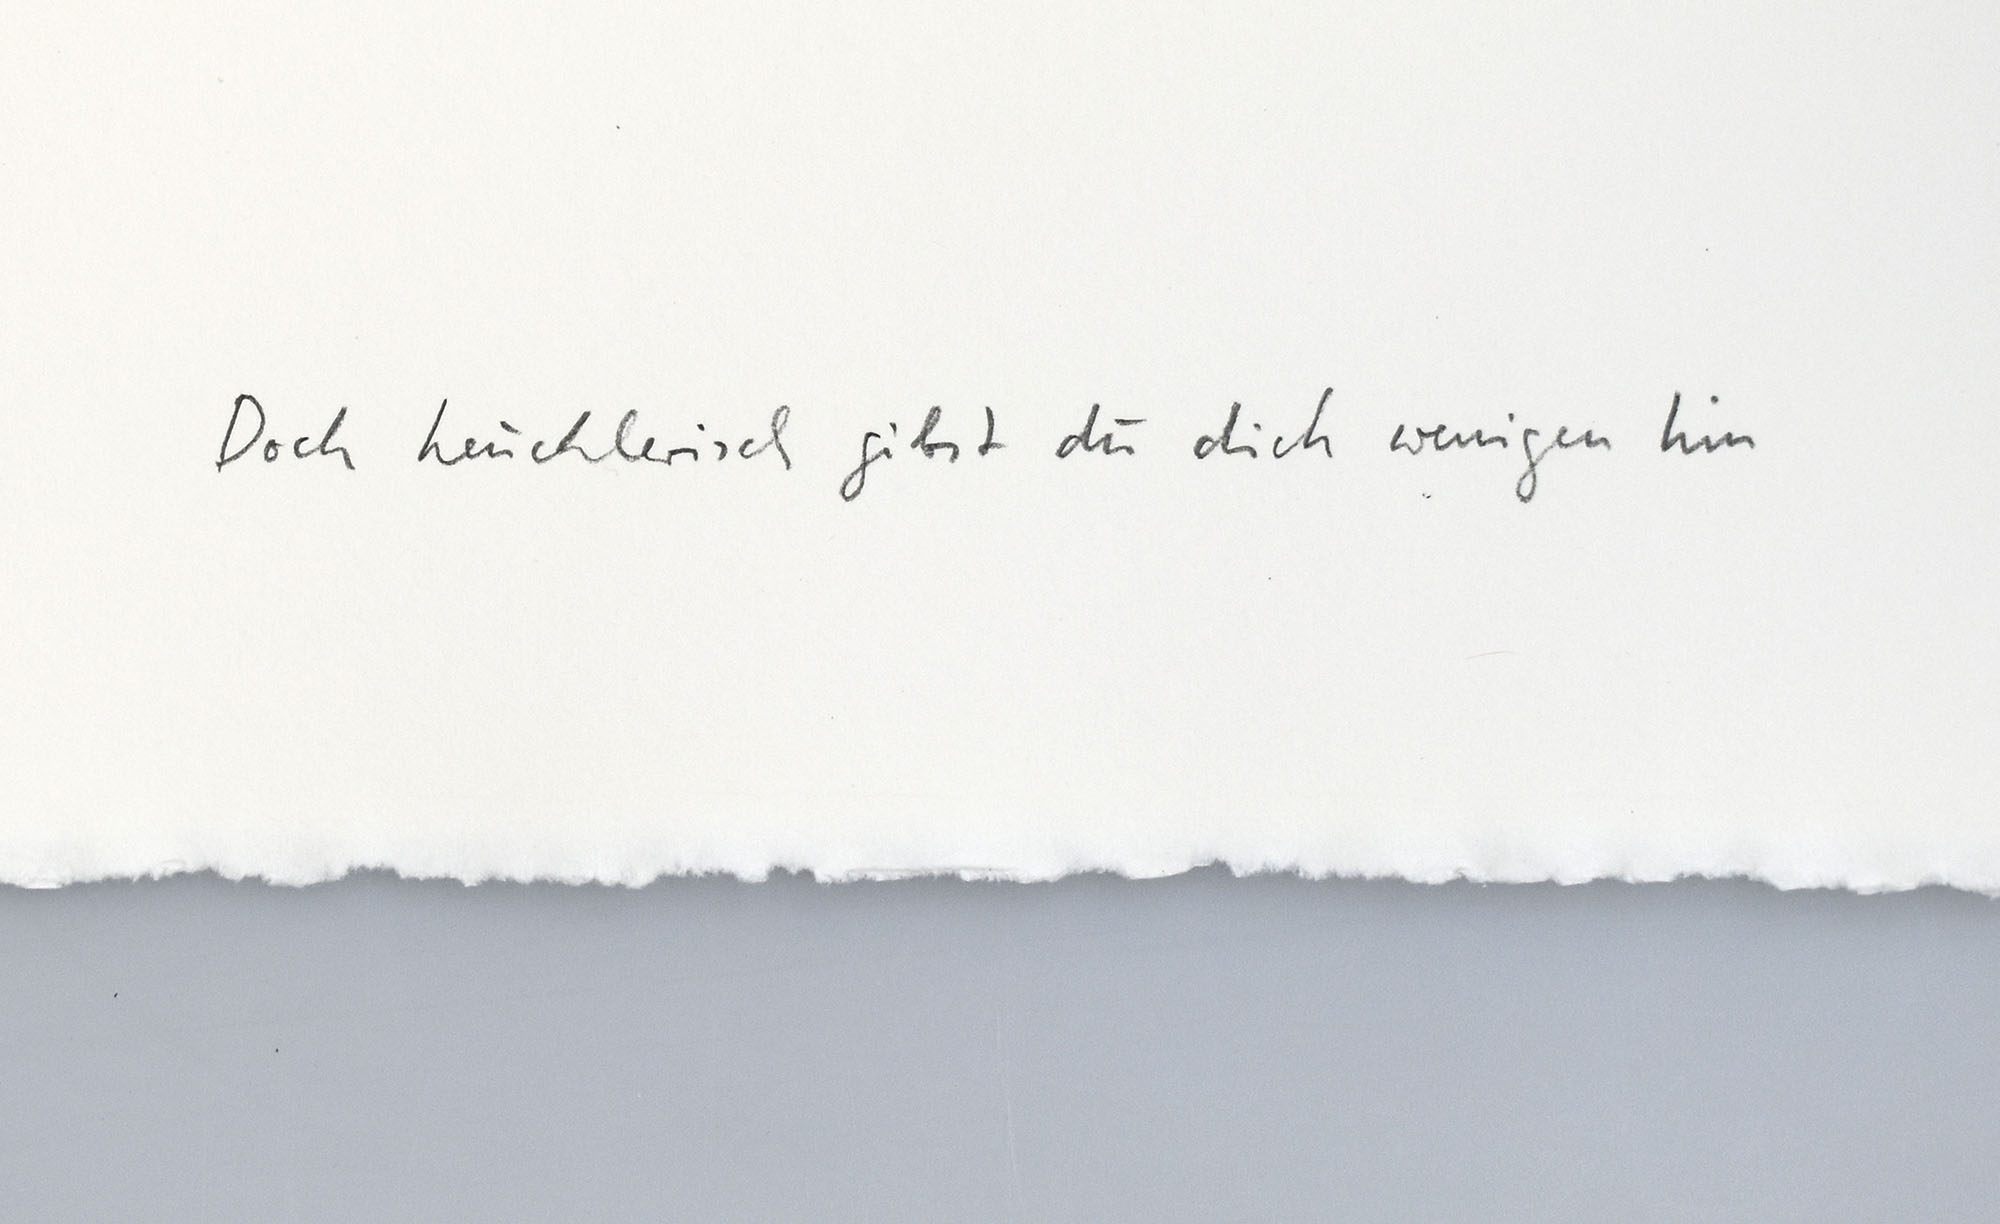 Doch heuchlerisch gibst du dich wenigen hin